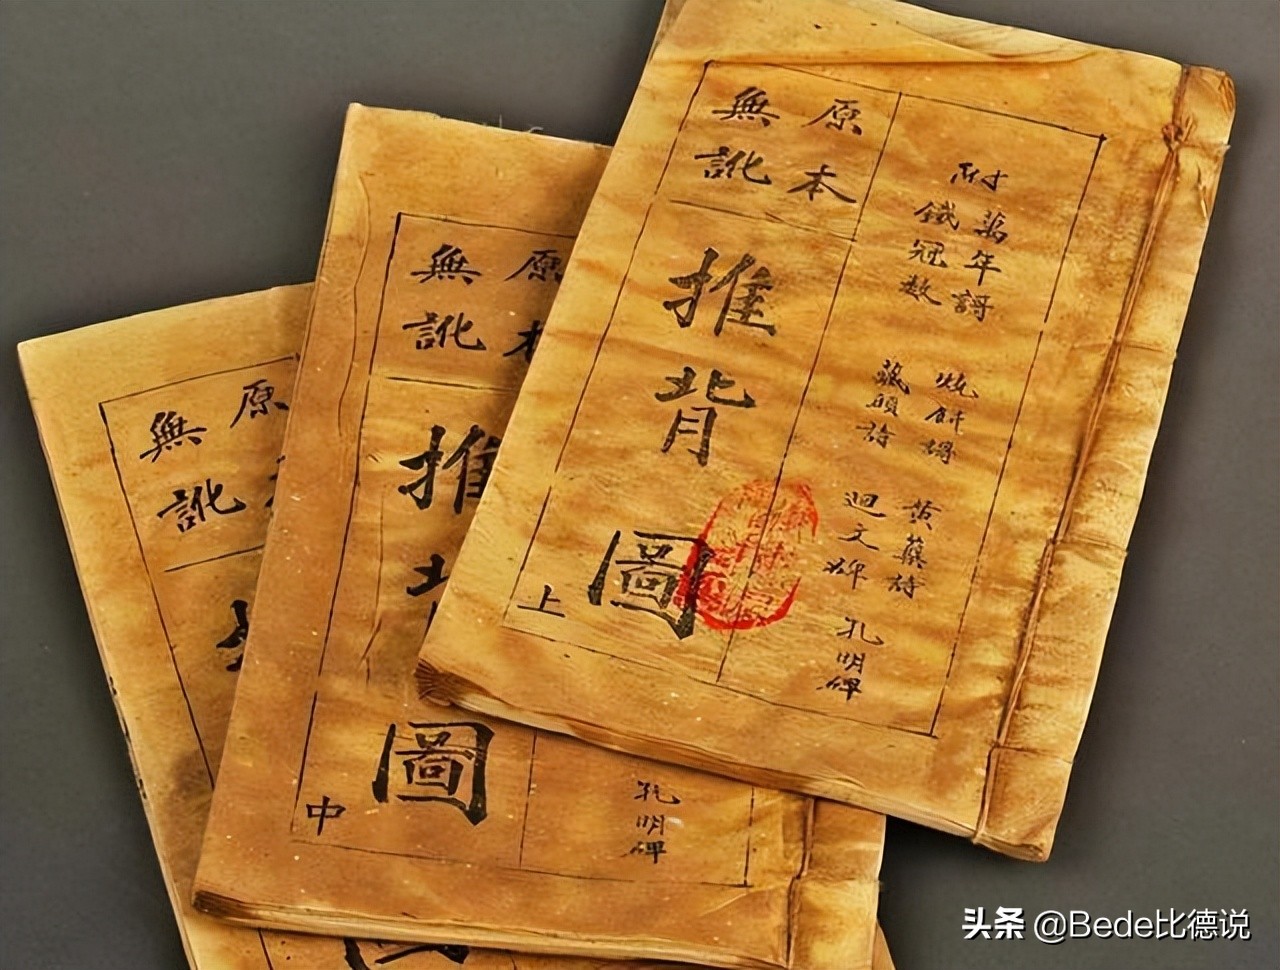 原本
無訛
推背圖
上
附
萬年謌
鐵冠數
燒餅謌
藏頭詩
黃蘗詩
迴文碑
孔明碑
原本
無訛
推
圖
中
孔明碑
原
無訛
头条 @Bede比德说